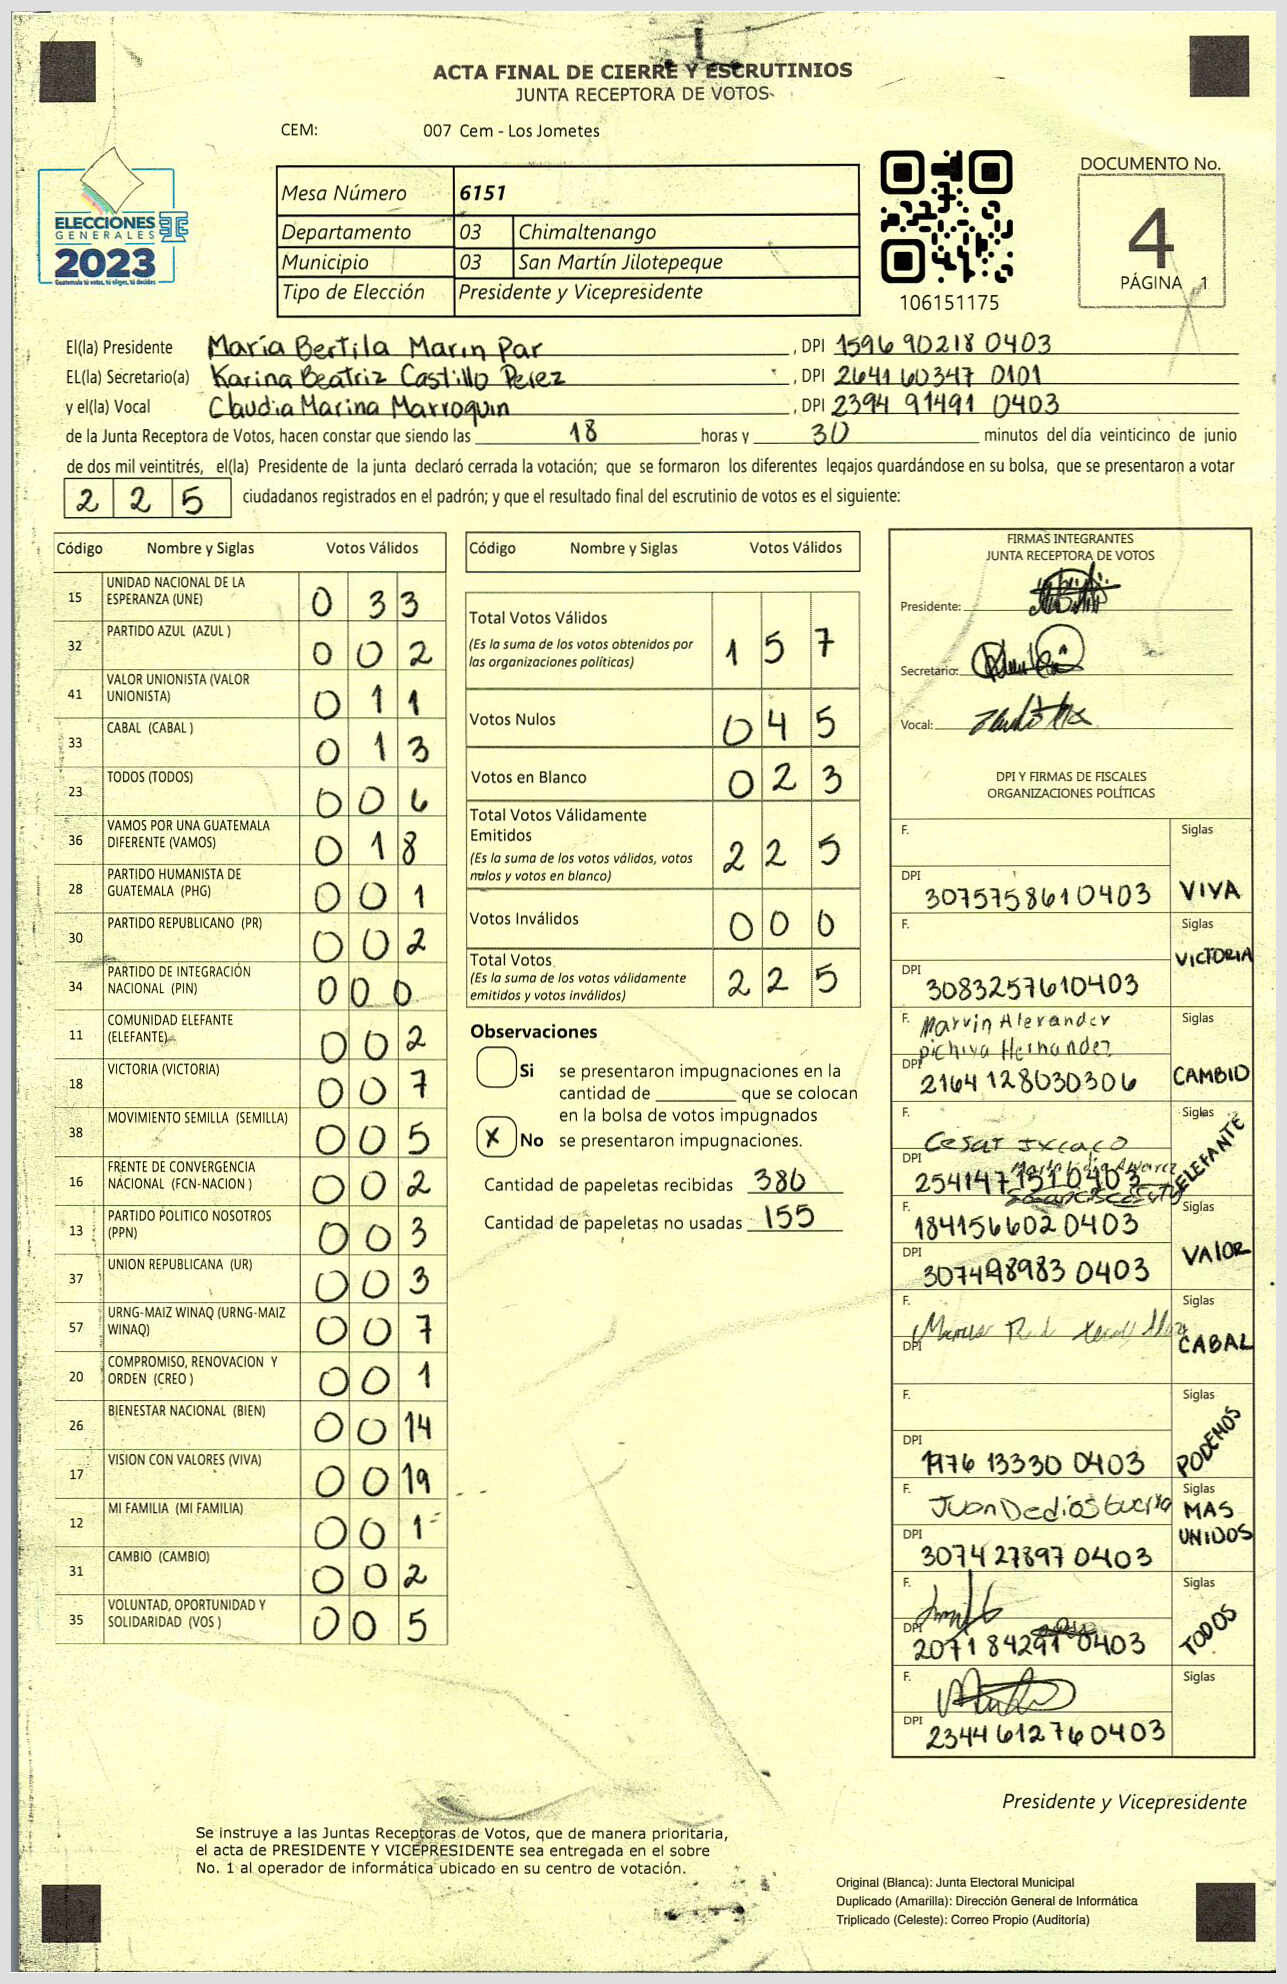 ACTA FINAL DE CIERRE Y ESCRUTINIOS
JUNTA RECEPTORA DE VOTOS
CEM: 007 Cem - Los Jometes
ELECCIONES
GENERALES
2023
Guatemala tú votas, tú eliges, tú decides
Mesa Número 6151
Departamento 03 Chimaltenango
Municipio 03 San Martín Jilotepeque
Tipo de Elección Presidente y Vicepresidente
106151175
DOCUMENTO No.
4
PÁGINA 1
El(la) Presidente María Bertila Marin Par , DPI 1596 90218 0403
EL(la) Secretario(a) Karina Beatriz Castillo Perez , DPI 2641 60347 0101
y el(la) Vocal Claudia Marina Marroquin , DPI 2394 91491 0403
de la Junta Receptora de Votos, hacen constar que siendo las 18 horas y 30 minutos del día veinticinco de junio
de dos mil veintitrés, el(la) Presidente de la junta declaró cerrada la votación; que se formaron los diferentes legajos guardándose en su bolsa, que se presentaron a votar
225 ciudadanos registrados en el padrón; y que el resultado final del escrutinio de votos es el siguiente:
Código Nombre y Siglas Votos Válidos
15 UNIDAD NACIONAL DE LA ESPERANZA (UNE) 0 3 3
32 PARTIDO AZUL (AZUL ) 0 0 2
41 VALOR UNIONISTA (VALOR UNIONISTA) 0 1 1
33 CABAL (CABAL ) 0 1 3
23 TODOS (TODOS) 0 0 6
36 VAMOS POR UNA GUATEMALA DIFERENTE (VAMOS) 0 1 8
28 PARTIDO HUMANISTA DE GUATEMALA (PHG) 0 0 1
30 PARTIDO REPUBLICANO (PR) 0 0 2
34 PARTIDO DE INTEGRACIÓN NACIONAL (PIN) 0 0 0
11 COMUNIDAD ELEFANTE (ELEFANTE) 0 0 2
18 VICTORIA (VICTORIA) 0 0 7
38 MOVIMIENTO SEMILLA (SEMILLA) 0 0 5
16 FRENTE DE CONVERGENCIA NACIONAL (FCN-NACION ) 0 0 2
13 PARTIDO POLITICO NOSOTROS (PPN) 0 0 3
37 UNION REPUBLICANA (UR) 0 0 3
57 URNG-MAIZ WINAQ (URNG-MAIZ WINAQ) 0 0 7
20 COMPROMISO, RENOVACION Y ORDEN (CREO ) 0 0 1
26 BIENESTAR NACIONAL (BIEN) 0 0 14
17 VISION CON VALORES (VIVA) 0 0 19
12 MI FAMILIA (MI FAMILIA) 0 0 1
31 CAMBIO (CAMBIO) 0 0 2
35 VOLUNTAD, OPORTUNIDAD Y SOLIDARIDAD (VOS ) 0 0 5
Código Nombre y Siglas Votos Válidos
Total Votos Válidos 1 5 7
(Es la suma de los votos obtenidos por
las organizaciones políticas)
Votos Nulos 0 4 5
Votos en Blanco 0 2 3
Total Votos Válidamente
Emitidos 2 2 5
(Es la suma de los votos válidos, votos
nulos y votos en blanco)
Votos Inválidos 0 0 0
Total Votos 2 2 5
(Es la suma de los votos válidamente
emitidos y votos inválidos)
Observaciones
Si se presentaron impugnaciones en la
cantidad de ________ que se colocan
en la bolsa de votos impugnados
X No se presentaron impugnaciones.
Cantidad de papeletas recibidas 380
Cantidad de papeletas no usadas 155
FIRMAS INTEGRANTES
JUNTA RECEPTORA DE VOTOS
Presidente:
Secretario:
Vocal:
DPI Y FIRMAS DE FISCALES
ORGANIZACIONES POLÍTICAS
F. Siglas
DPI 3075758610403 VIVA
F. Siglas
VICTORIA
DPI 3083257610403
F. Marvin Alexander Siglas
Pichiya Hernandez
DPI 2164128030306 CAMBIO
F. Siglas
Cesar Ixcaco ELEFANTE
DPI 2541471510403
F. 184156602 0403 Siglas
DPI 307498983 0403 VALOR
F. Siglas
DPI CABAL
F. Siglas
DPI 1976 13330 0403 PODEMOS
F. Juan Dedios Siglas
MAS
UNIDOS
DPI 3074 27897 0403
F. Siglas
DPI 2071 84291 0403 TODOS
F. Siglas
DPI 2344 61276 0403
Presidente y Vicepresidente
Se instruye a las Juntas Receptoras de Votos, que de manera prioritaria,
el acta de PRESIDENTE Y VICEPRESIDENTE sea entregada en el sobre
No. 1 al operador de informática ubicado en su centro de votación.
Original (Blanca): Junta Electoral Municipal
Duplicado (Amarilla): Dirección General de Informática
Triplicado (Celeste): Correo Propio (Auditoría)